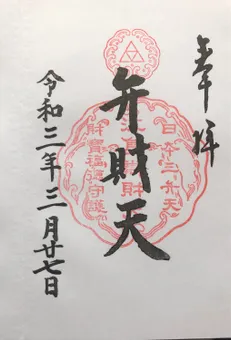 奉拝
弁財天
日本三弁天
財寳福徳守護
令和三年三月廿七日